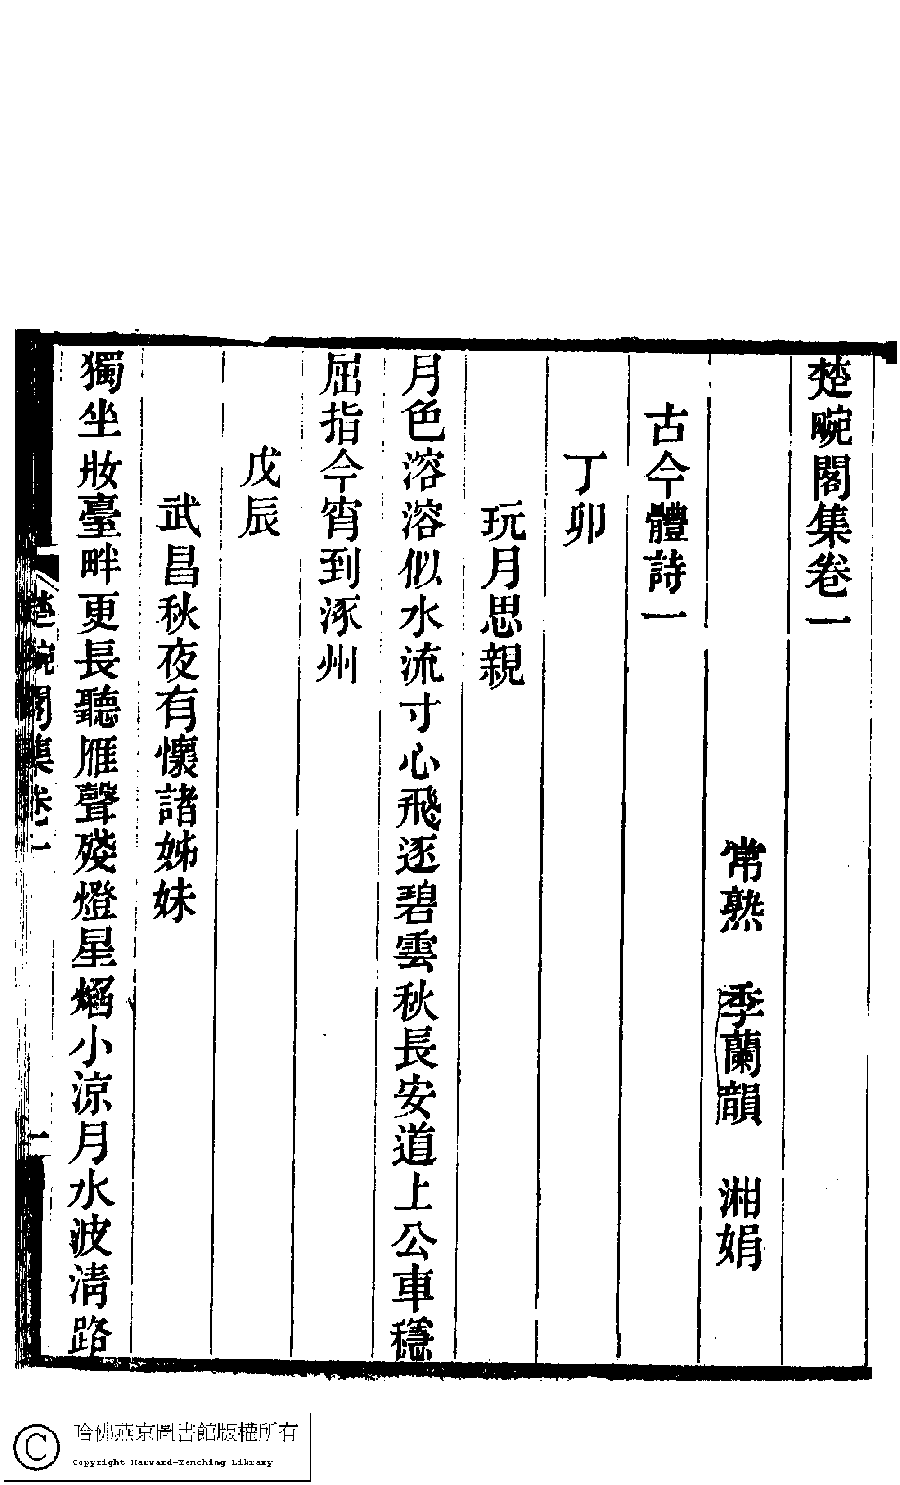 楚畹閣集卷一
常熟　季蘭韻　湘娟
古今體詩一
丁卯
玩月思親
月色溶溶似水流寸心飛逐碧雲秋長安道上公車穩
屈指今宵到涿州
戊辰
武昌秋夜有懷諸姊妹
獨坐妝臺畔更長聽雁聲殘燈星燄小涼月水波清路
楚畹閣集卷一
一
哈佛燕京圖書館版權所有
Copyright Harvard-Yenching Library